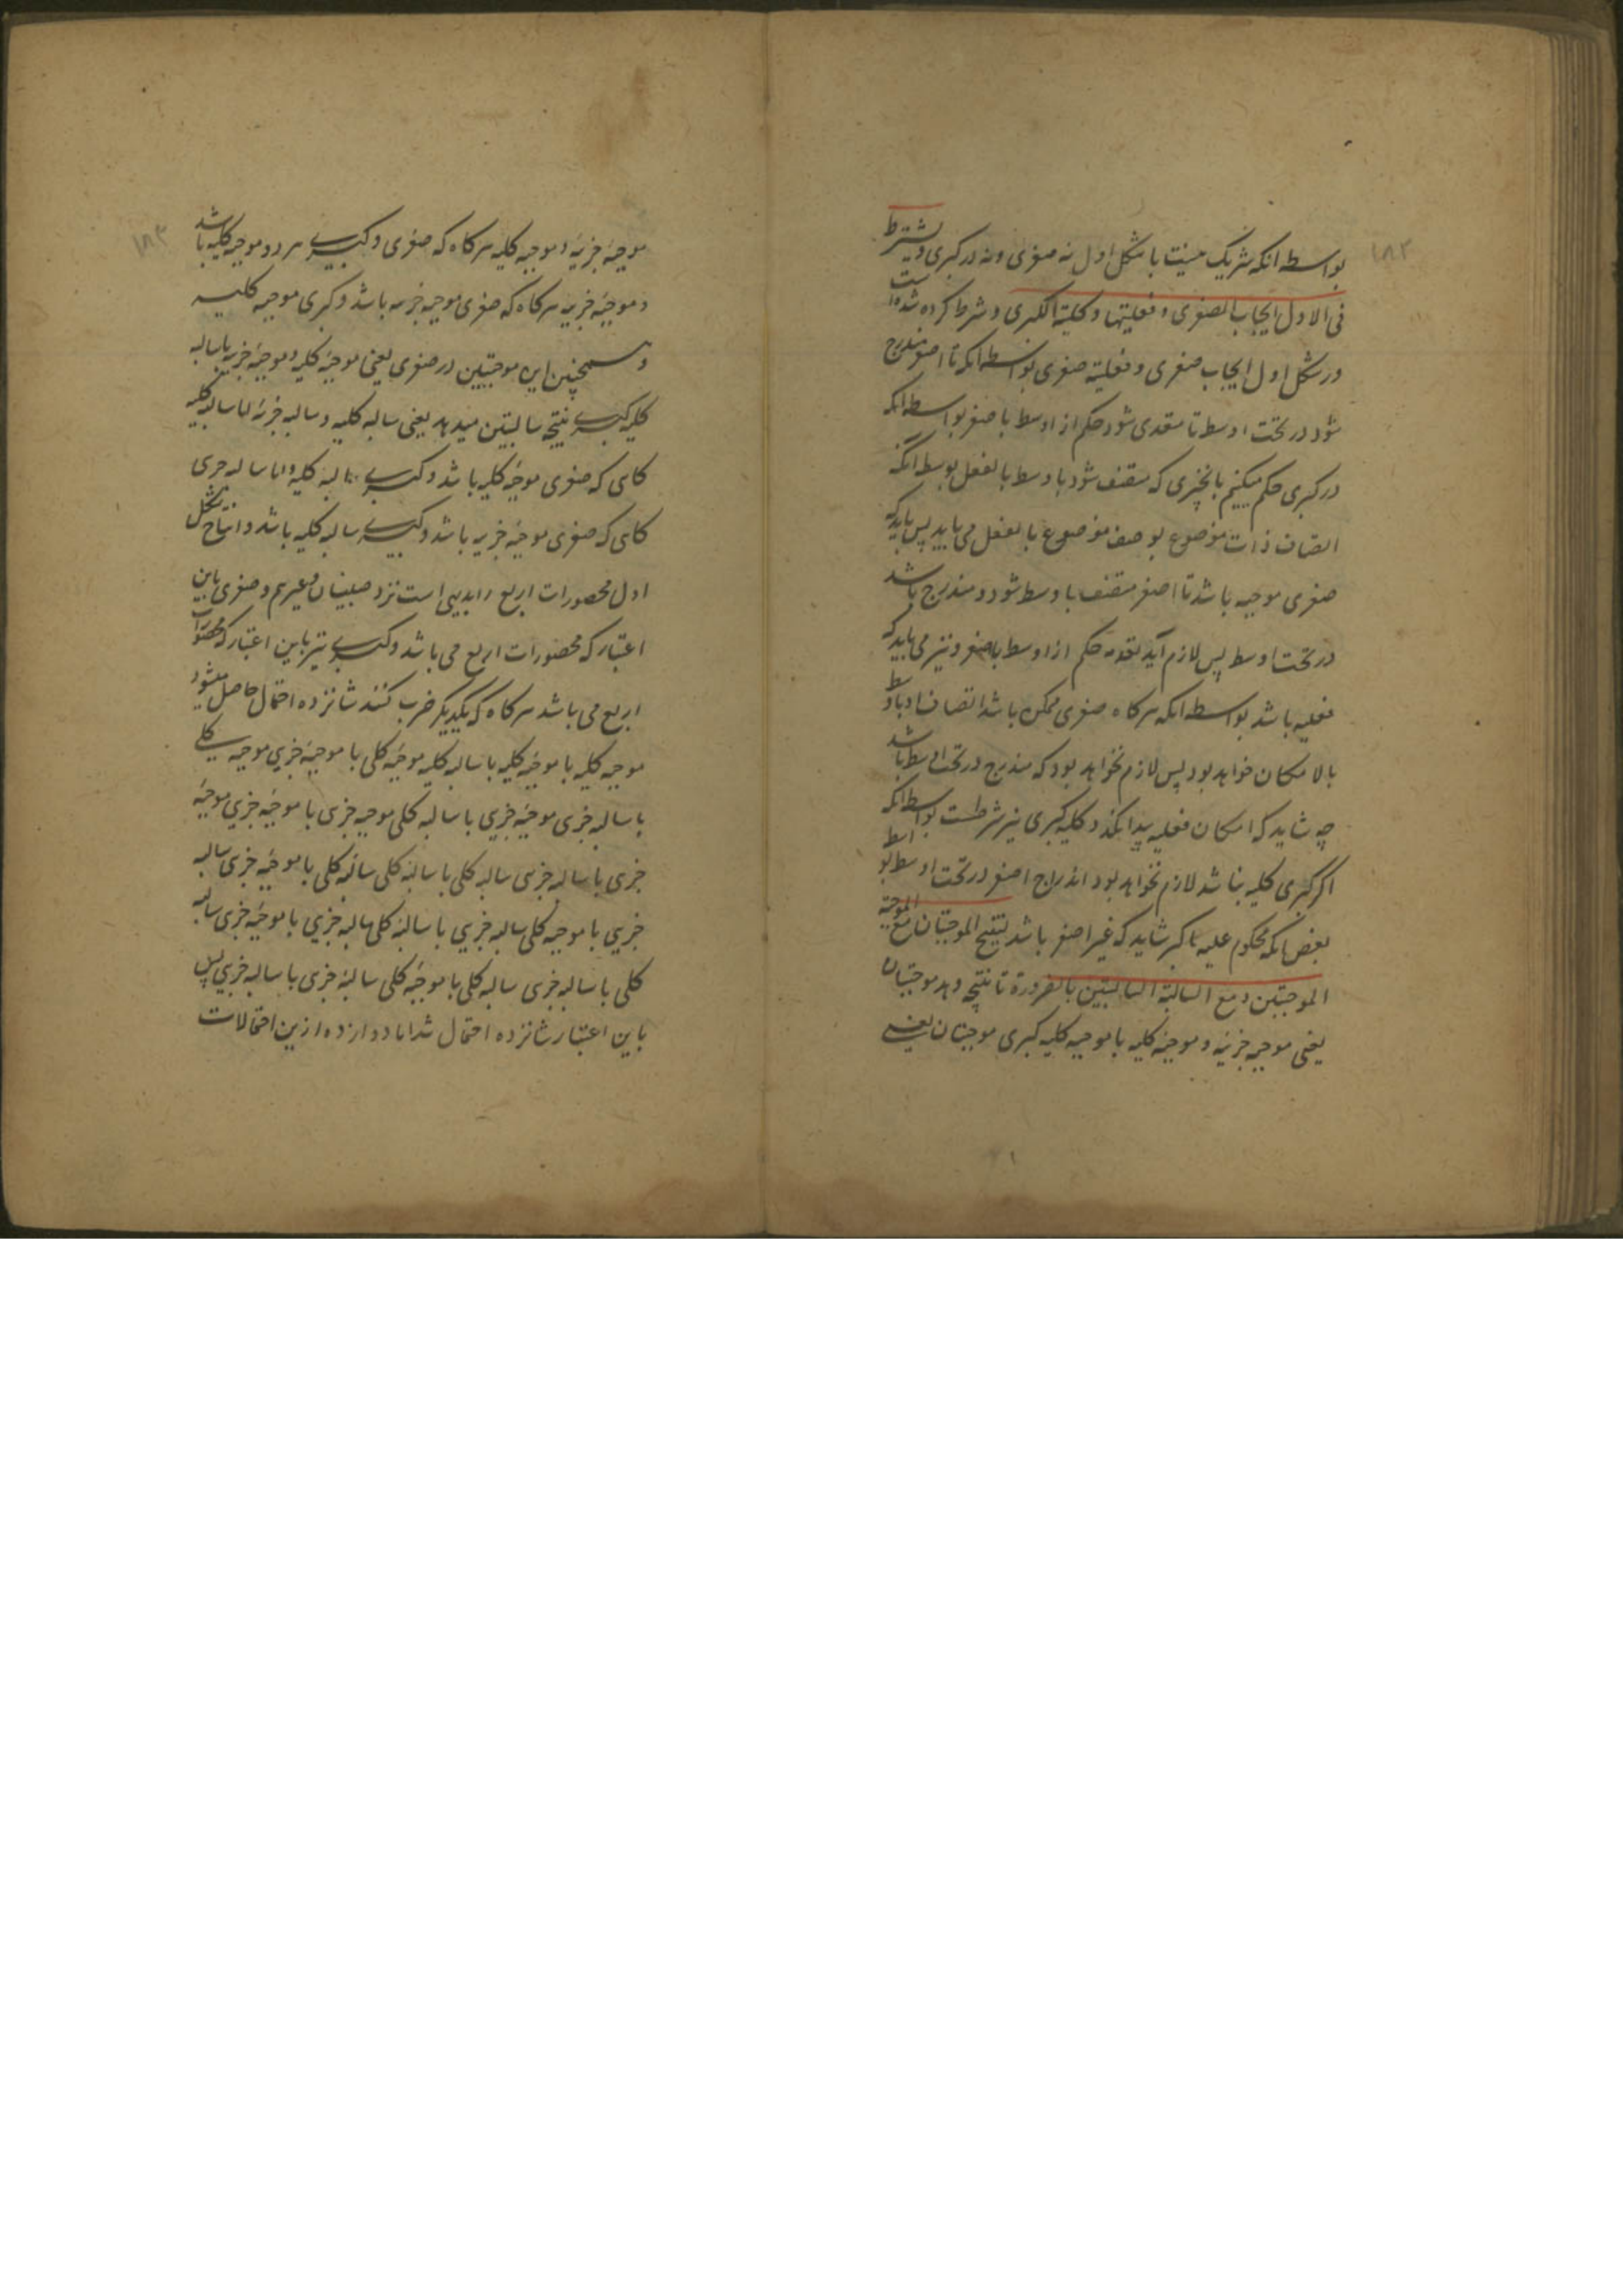 ۱۸۲
بواسطه انکه شریک نیست با شکل اول نه صغری و نه در کبری ویشترط
فی الاول ایجاب الصغری و فعلیتها و کلیة الکبری و شرط کرده شده است
در شکل اول ایجاب صغری و فعلیة صغری بواسطه انکه تا اصغر مندرج
شود در تحت اوسط تا متعدی شود حکم از اوسط باصغر بواسطه انکه
در کبری حکم میکنیم بانچیزی که متصف شود باوسط بالفعل بوسطه انکه
اتصاف ذات موضوع بوصف موضوع بالفعل می باید پس باید که
صغری موجبه باشد تا اصغر متصف باوسط شود و مندرج باشد
در تحت اوسط پس لازم آید تعدیه حکم از اوسط باصغر و نیز می باید که
فعلیه باشد بواسطه انکه هرکاه صغری ممکن باشد اتصاف او باوسط
بالامکان خواهد بود پس لازم نخواهد بود که مندرج در تحت اوسط باشد
چه شاید که امکان فعلیه پیدا نکند و کلیه کبری نیز شرطست بواسطه انکه
اکر کبری کلیه نباشد لازم نخواهد بود اندراج اصغر در تحت اوسط
بعض انکه محکوم علیه باکبر شاید که غیر اصغر باشد لینتج الموجبتان مع الموجبة
الموجبتین و مع السالبة السالبتین بالضرورة تا نتیجه دهد موجبتان
یعنی موجبه جزئیه و موجبه کلیه با موجبه کلیه کبری موجبتان یعنی
۱۸۳
موجبه جزئیه و موجبه کلیه هرکاه که صغری و کبری هر دو موجبه کلیه باشد
و موجبه جزییه هرکاه که صغری موجبه جزییه باشد و کبری موجبه کلیه
و همچنین این موجبتین در صغری یعنی موجبه کلیه و موجبه جزییه با سالبه
کلیه کبری نتیجه سالبتین میدهد یعنی سالبه کلیه و سالبه جزئیه اما سالبه کلیه
کاهی که صغری موجبه کلیه باشد و کبری سالبه کلیه و اما سالبه جزی
کاهی که صغری موجبه جزییه باشد و کبری سالبه کلیه باشد و انتاج شکل
اول محصورات اربع را بدیهی است نزد و صغری باین
اعتبار که محصورات اربع می باشد و کبری نیز باین اعتبار که محصورات
اربع می باشد هرکاه که بیکدیکر ضرب کنند شانزده احتمال حاصل میشود
موجبه کلیه با موجبه کلیه با سالبه کلیه موجبه کلی با موجبه جزی موجبه کلی
با سالبه جزی موجبه جزیی با سالبه کلی موجبه جزی با موجبه جزیی موجبه
جزی با سالبه جزیی سالبه کلی با سالبه کلی سالبه کلی با موجبه جزی سالبه
جزیی با موجبه کلی سالبه جزیی با سالبه کلی سالبه جزیی با موجبه جزی سالبه
کلی با سالبه جزی سالبه کلی با موجبه کلی سالبه جزی با سالبه جزیی پس
باین اعتبار شانزده احتمال شد اما دوازده ازین احتمالات